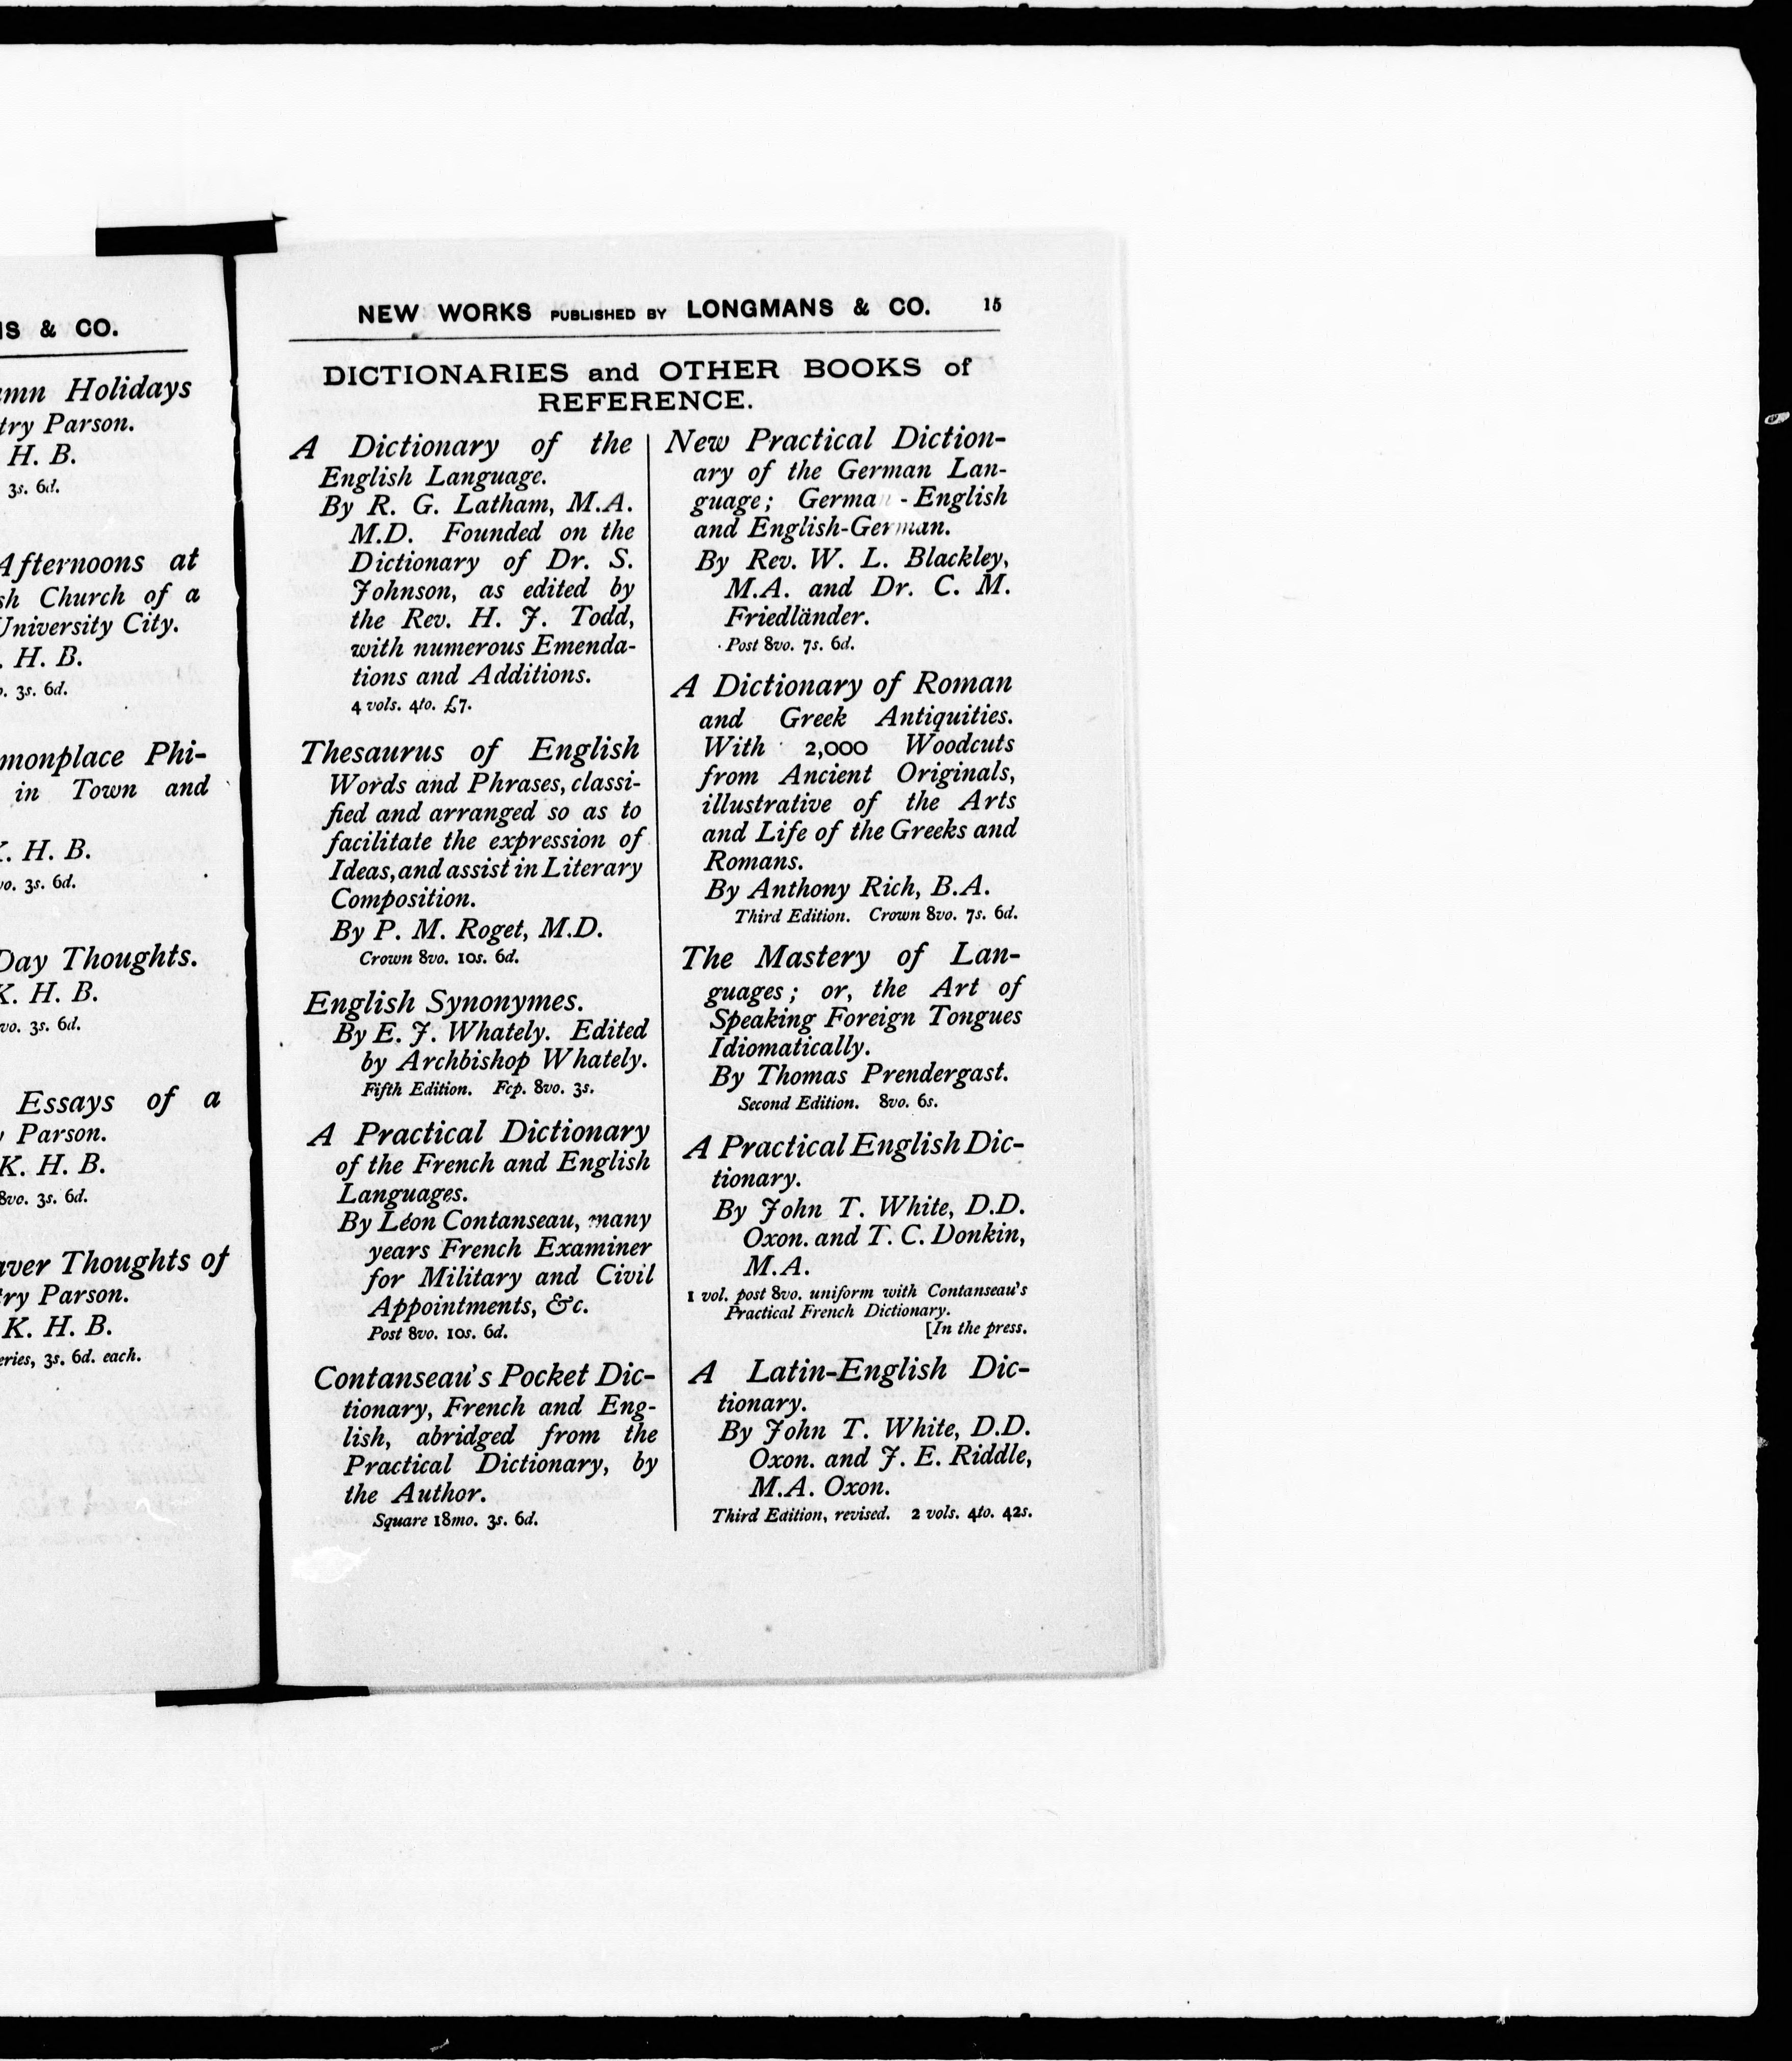 IS & CO.
Holidays
Parson.
H. B.
3s. 6d.
Afternoons at
Church of a
University City.
H. B.
3s. 6d.
Phi-
in Town and
H. B.
3s. 6d.
Day Thoughts.
K. H. B.
3s. 6d.
Essays of a
Parson.
K. H. B.
8vo. 3s. 6d.
Thoughts of
Parson.
K. H. B.
3s. 6d. each.
NEW WORKS PUBLISHED BY LONGMANS & CO. 15
DICTIONARIES and OTHER BOOKS of
REFERENCE.
A Dictionary of the
English Language.
By R. G. Latham, M.A.
M.D. Founded on the
Dictionary of Dr. S.
Johnson, as edited by
the Rev. H. J. Todd,
with numerous Emenda-
tions and Additions.
4 vols. 4to. £7.
Thesaurus of English
Words and Phrases, classi-
fied and arranged so as to
facilitate the expression of
Ideas, and assist in Literary
Composition.
By P. M. Roget, M.D.
Crown 8vo. 10s. 6d.
English Synonymes.
By E. J. Whately. Edited
by Archbishop Whately.
Fifth Edition. Fcp. 8vo. 3s.
A Practical Dictionary
of the French and English
Languages.
By Léon Contanseau, many
years French Examiner
for Military and Civil
Appointments, &c.
Post 8vo. 10s. 6d.
Contanseau's Pocket Dic-
tionary, French and Eng-
lish, abridged from the
Practical Dictionary, by
the Author.
Square 18mo. 3s. 6d.
New Practical Diction-
ary of the German Lan-
guage; German-English
and English-German.
By Rev. W. L. Blackley,
M.A. and Dr. C. M.
Friedländer.
Post 8vo. 7s. 6d.
A Dictionary of Roman
and Greek Antiquities.
With 2,000 Woodcuts
from Ancient Originals,
illustrative of the Arts
and Life of the Greeks and
Romans.
By Anthony Rich, B.A.
Third Edition. Crown 8vo. 7s. 6d.
The Mastery of Lan-
guages; or, the Art of
Speaking Foreign Tongues
Idiomatically.
By Thomas Prendergast.
Second Edition. 8vo. 6s.
A Practical English Dic-
tionary.
By John T. White, D.D.
Oxon. and T. C. Donkin,
M.A.
1 vol. post 8vo. uniform with Contanseau's
Practical French Dictionary.
[In the press.
A Latin-English Dic-
tionary.
By John T. White, D.D.
Oxon. and J. E. Riddle,
M.A. Oxon.
Third Edition, revised. 2 vols. 4to. 42s.